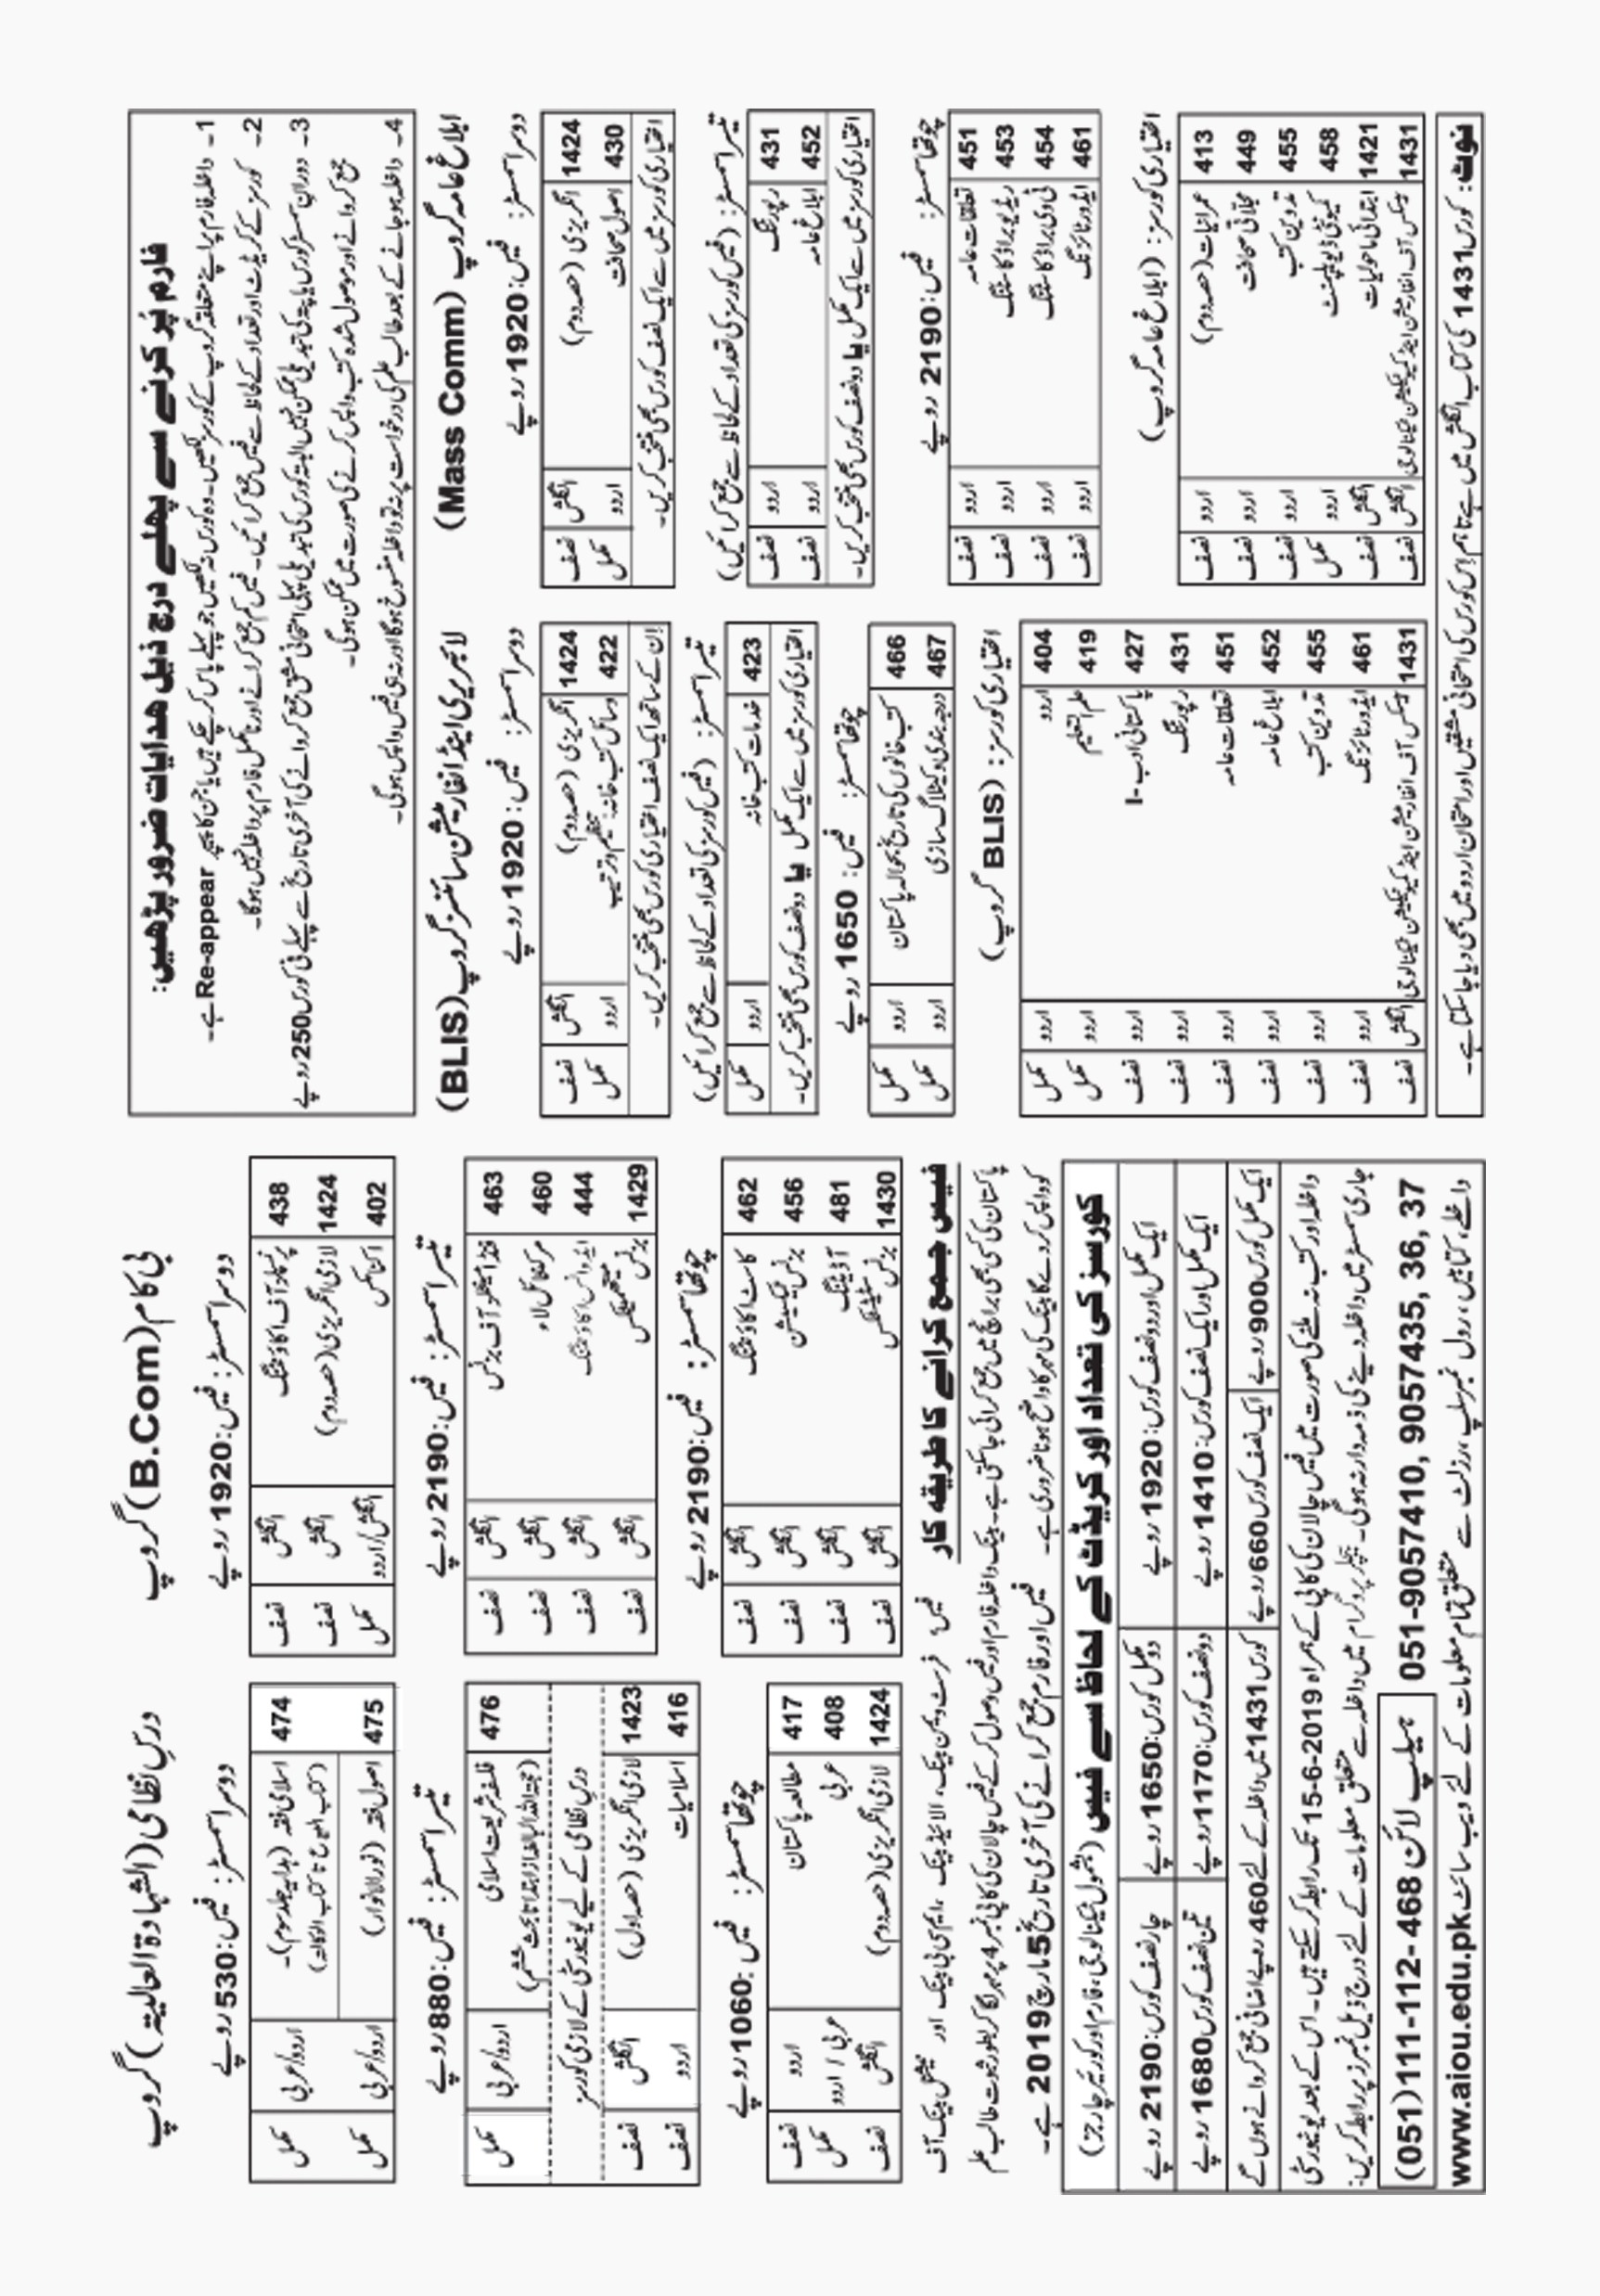 فارم پُر کرنے سے پہلے درج ذیل ہدایات ضرور پڑھیں:
1۔ داخلہ فارم پر اپنے متعلقہ گروپ کے کورسز لکھیں۔ وہ کورس نہ لکھیں جو پہلے پاس کر چکے ہیں یا جن کا پیپر Re-appear ہے۔
2۔ کورسز کے کریڈٹ اور تعداد کے لحاظ سے فیس جمع کرائیں۔ فیس کم جمع کرانے اور نامکمل فارم پر داخلہ نہیں ہوگا۔
3۔ دوران سمسٹر کورس یا پتہ کی تبدیلی ممکن نہیں البتہ کورس کی تبدیلی پہلی امتحانی مشق جمع کروانے کی آخری تاریخ سے پہلے فی کورس 250 روپے
جمع کروانے اور موصول شدہ کتب واپس کرنے کی صورت میں ممکن ہوگی۔
4۔ داخلہ ہو جانے کے بعد طالب علم کی درخواست پر نہ تو داخلہ منسوخ ہوگا اور نہ ہی فیس واپس ہوگی۔
ابلاغ عامہ گروپ (Mass Comm)
دوسرا سمسٹر: فیس: 1920 روپے
1424 انگریزی (حصہ دوم) انگلش نصف
430 اصول صحافت اردو مکمل
اختیاری کورسز میں سے ایک نصف کورس بھی منتخب کریں۔
تیسرا سمسٹر: (فیس کورسز کی تعداد کے لحاظ سے جمع کرائیں)
431 رپورٹنگ اردو نصف
452 ابلاغ عامہ اردو نصف
اختیاری کورسز میں سے ایک مکمل یا دو نصف کورس بھی منتخب کریں۔
چوتھا سمسٹر: فیس: 2190 روپے
451 تعلقات عامہ اردو نصف
453 ریڈیو براڈکاسٹنگ اردو نصف
454 ٹی وی براڈکاسٹنگ اردو نصف
461 ایڈورٹائزنگ اردو نصف
اختیاری کورسز: (ابلاغ عامہ گروپ)
413 عمرانیات (حصہ دوم) اردو نصف
449 مجلاتی صحافت اردو نصف
455 تدوین کتب اردو نصف
458 کمیونٹی ڈویلپمنٹ اردو مکمل
1421 ابتدائی ماحولیات انگلش نصف
1431 بیسکس آف انفارمیشن اینڈ کمیونیکیشن ٹیکنالوجی انگلش نصف
لائبریری اینڈ انفارمیشن سائنسز گروپ (BLIS)
دوسرا سمسٹر: فیس: 1920 روپے
1424 انگریزی (حصہ دوم) انگلش نصف
422 وسائل کتب خانہ: تنظیم و ترتیب اردو مکمل
ان کے ساتھ ایک نصف اختیاری کورس بھی منتخب کریں۔
تیسرا سمسٹر: (فیس کورسز کی تعداد کے لحاظ سے جمع کرائیں)
423 خدمات کتب خانہ اردو مکمل
اختیاری کورسز میں سے ایک مکمل یا دو نصف کورس بھی منتخب کریں۔
چوتھا سمسٹر: فیس: 1650 روپے
466 کتب خانوں کی تاریخ بحوالہ پاکستان اردو مکمل
467 درجہ بندی و کیٹلاگ سازی اردو مکمل
اختیاری کورسز: (BLIS گروپ)
404 اردو اردو مکمل
419 علم التعلیم اردو مکمل
427 پاکستانی ادب-I اردو نصف
431 رپورٹنگ اردو نصف
451 تعلقات عامہ اردو نصف
452 ابلاغ عامہ اردو نصف
455 تدوین کتب اردو نصف
461 ایڈورٹائزنگ اردو نصف
1431 بیسکس آف انفارمیشن اینڈ کمیونیکیشن ٹیکنالوجی انگلش نصف
نوٹ: کورس 1431 کی کتاب انگلش میں ہے تاہم اس کورس کی امتحانی مشقیں اور امتحان اردو میں بھی دیا جا سکتا ہے۔
بی کام (B.Com) گروپ
دوسرا سمسٹر: فیس: 1920 روپے
438 پرنسپلز آف اکاؤنٹنگ انگلش نصف
1424 لازمی انگریزی (حصہ دوم) انگلش نصف
402 اکنامکس انگلش/اردو مکمل
تیسرا سمسٹر: فیس: 2190 روپے
463 فنڈامینٹلز آف بزنس انگلش نصف
460 مرکنٹائل لاء انگلش نصف
444 ایڈوانس اکاؤنٹنگ انگلش نصف
1429 بزنس میتھمیٹکس انگلش نصف
چوتھا سمسٹر: فیس: 2190 روپے
462 کاسٹ اکاؤنٹنگ انگلش نصف
456 بزنس ٹیکسیشن انگلش نصف
481 آڈیٹنگ انگلش نصف
1430 بزنس سٹیٹسٹکس انگلش نصف
درس نظامی (الشهادة العالية) گروپ
دوسرا سمسٹر: فیس: 530 روپے
474 اسلامی فقہ (ہدایہ جلد سوم)۔ (کتاب البیوع تا کتاب الوکالہ) اردو/عربی مکمل
475 اصول فقہ (نور الانوار) اردو/عربی مکمل
تیسرا سمسٹر: فیس: 880 روپے
476 فلسفہ شریعت اسلامی (حجۃ اللہ البالغہ از ابتدا تا مبحث ششم) اردو/عربی مکمل
درس نظامی کے لیے یونیورسٹی کے لازمی کورسز
1423 لازمی انگریزی (حصہ اول) انگلش نصف
416 اسلامیات اردو نصف
چوتھا سمسٹر: فیس: 1060 روپے
417 مطالعہ پاکستان اردو نصف
408 عربی عربی / اردو مکمل
1424 لازمی انگریزی (حصہ دوم) انگلش نصف
فیس جمع کرانے کا طریقہ کار
فیس: فرسٹ ویمن بینک، الائیڈ بینک، ایم سی بی بینک اور نیشنل بینک آف
پاکستان کی کسی بھی برانچ میں جمع کرائی جا سکتی ہے۔ بینک داخلہ فارم اور فیس وصول کر کے فیس چالان کی کاپی نمبر 4 پر مہر لگا کر بطور ثبوت طالب علم
کو واپس کر دے گا بینک کی مہر کا واضح ہونا ضروری ہے۔ فیس اور فارم جمع کرانے کی آخری تاریخ 5 مارچ 2019 ہے۔
کورسز کی تعداد اور کریڈٹ کے لحاظ سے فیس (بشمول ٹیکنالوجی، فارم اور کوریئر چارجز)
ایک مکمل اور دو نصف کورس: 1920 روپے دو مکمل کورس: 1650 روپے چار نصف کورس: 2190 روپے
ایک مکمل اور ایک نصف کورس: 1410 روپے دو نصف کورس: 1170 روپے تین نصف کورس 1680 روپے
ایک مکمل کورس 900 روپے ایک نصف کورس 660 روپے کورس 1431 میں داخلہ کے لئے 460 روپے اضافی جمع کروانے ہوں گے
داخلہ اور کتب نہ ملنے کی صورت میں فیس چالان کی کاپی کے ہمراہ 15-6-2019 تک رابطہ کر سکتے ہیں۔ اس کے بعد یونیورسٹی
جاری سمسٹر میں داخلہ دینے کی ذمہ دار نہ ہوگی۔ بیچلر پروگرام میں داخلہ سے متعلق معلومات کے لئے درج ذیل نمبرز پر رابطہ کریں:
051-9057410, 9057435, 36, 37 ہیلپ لائن 468-112-111(051)
داخلے، کتابیں، رول نمبر سلپ، رزلٹ سے متعلق تمام معلومات کے لئے ویب سائٹ www.aiou.edu.pk